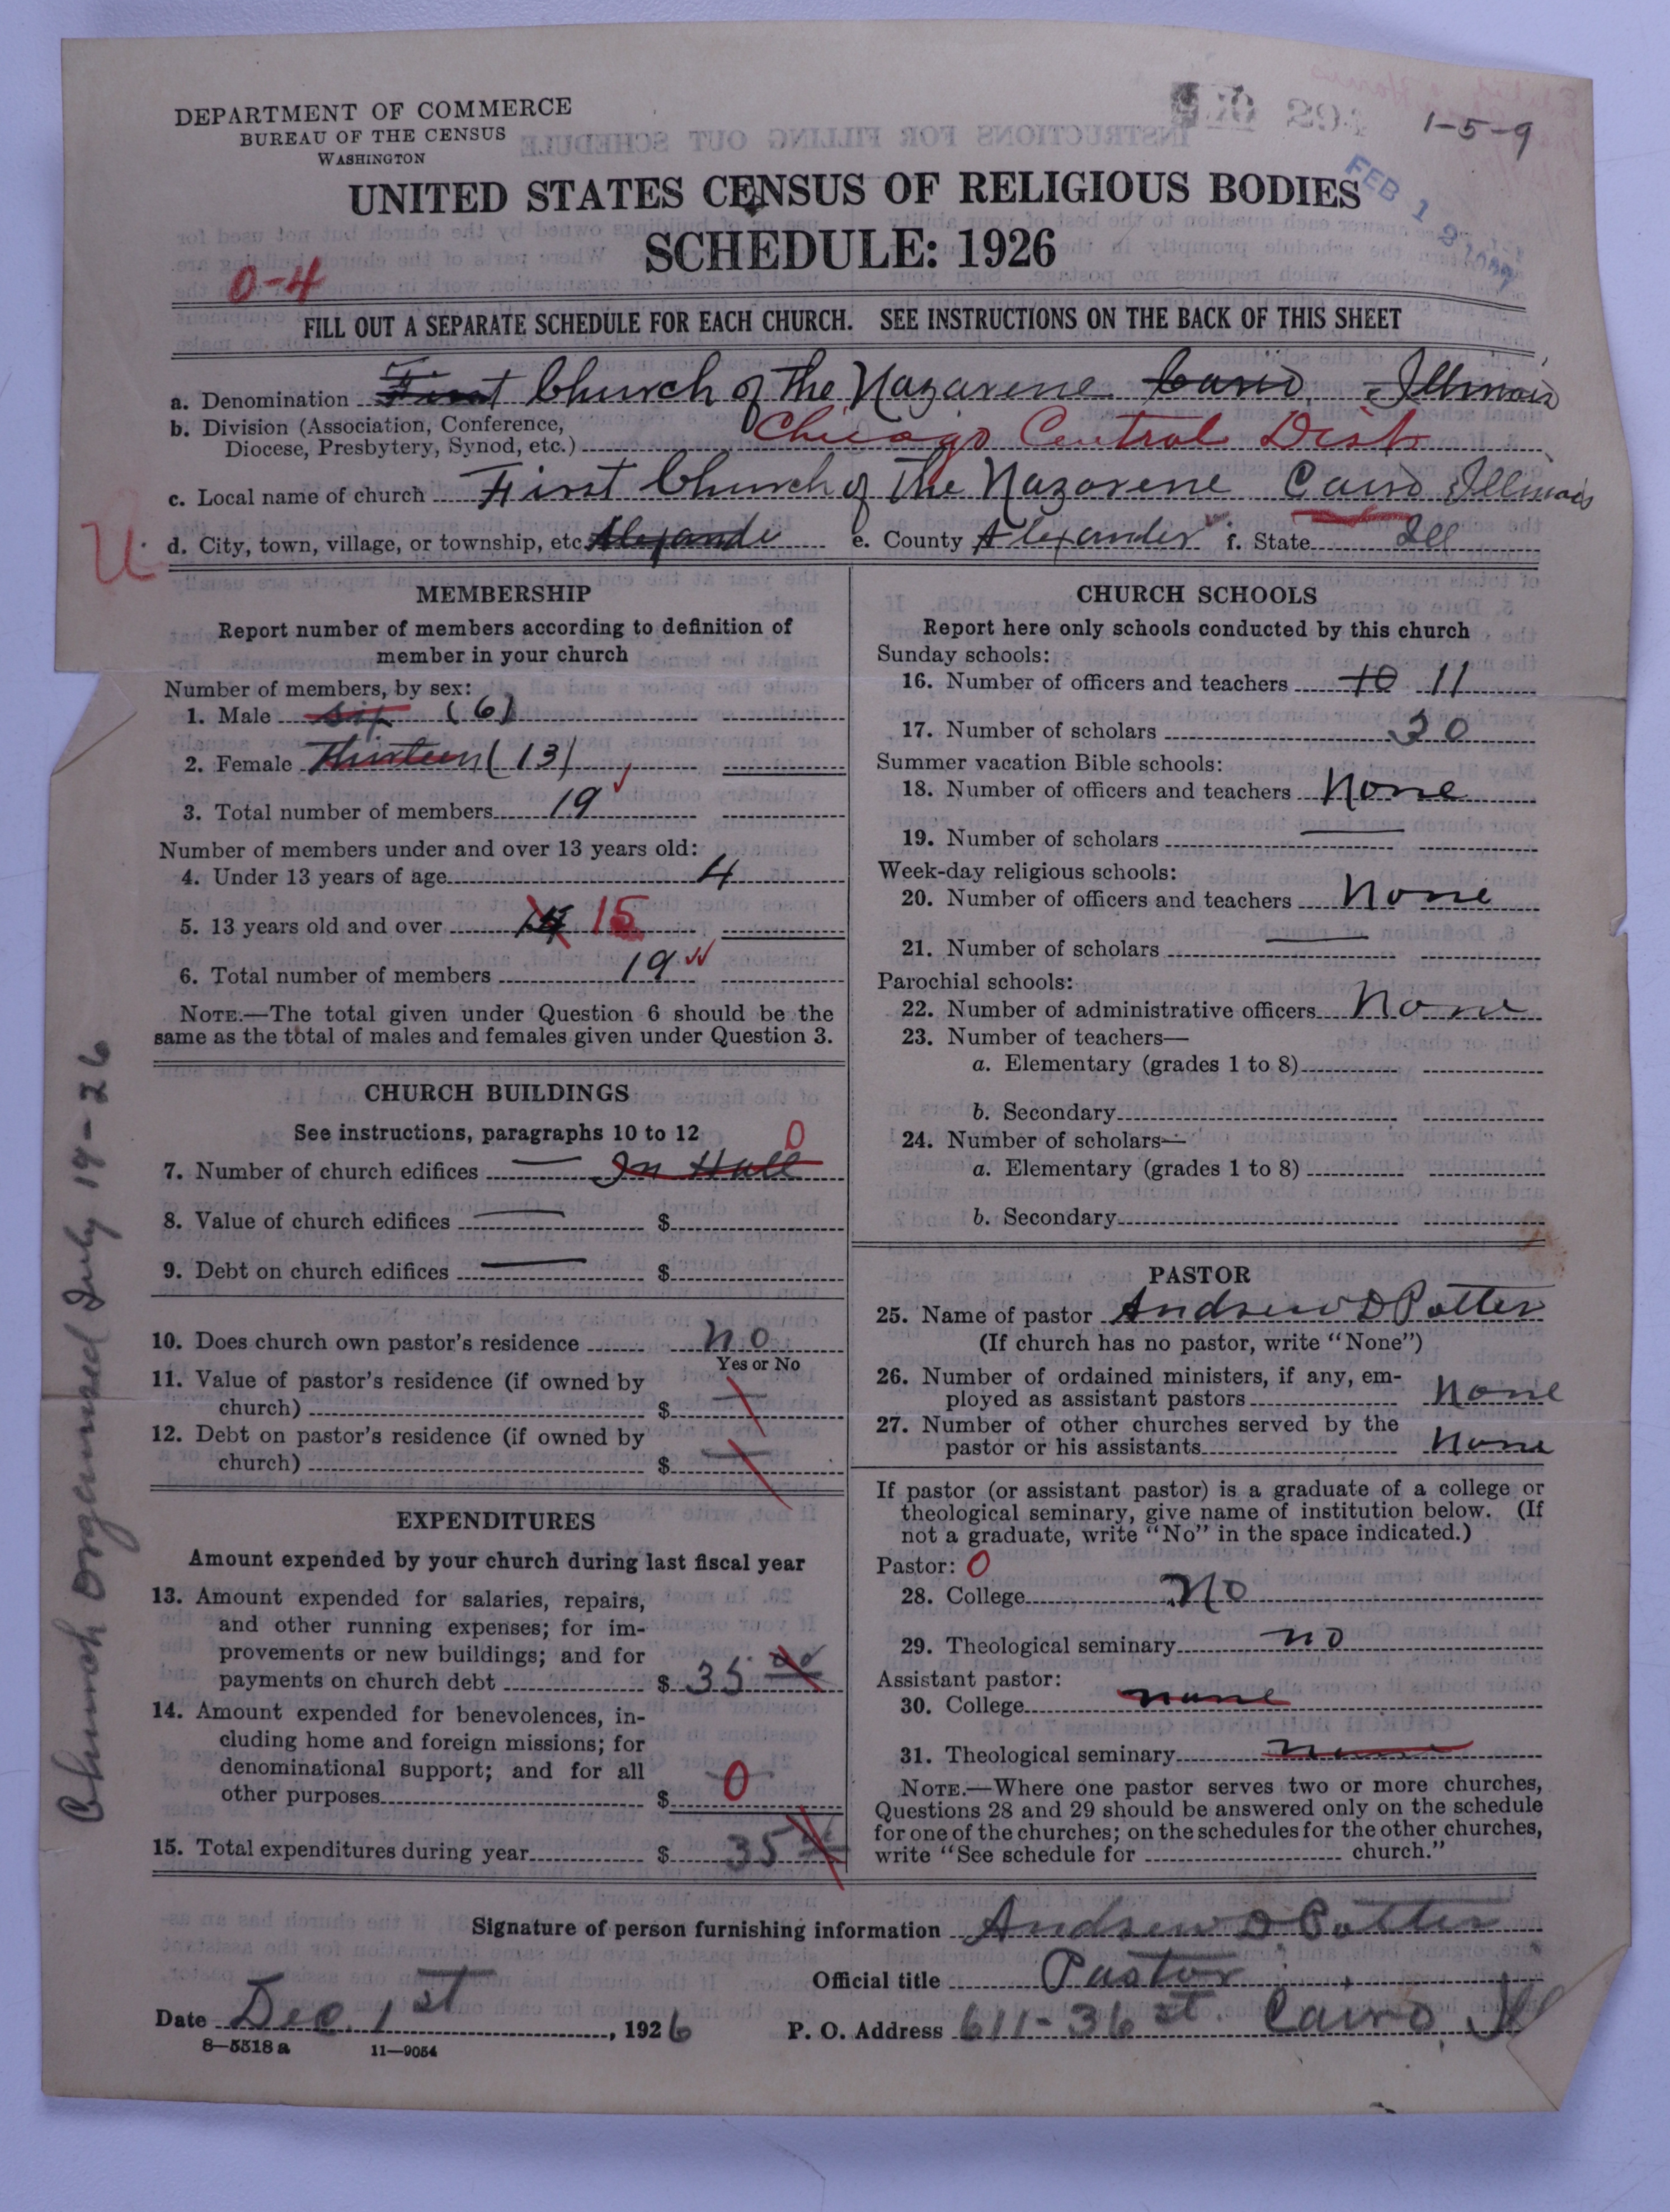 DEPARTMENT OF COMMERCE
BUREAU OF THE CENSUS
WASHINGTON
1-5-9
FEB 1 8
UNITED STATES CENSUS OF RELIGIOUS BODIES
SCHEDULE: 1926
0-4
FILL OUT A SEPARATE SCHEDULE FOR EACH CHURCH. SEE INSTRUCTIONS ON THE BACK OF THIS SHEET
a. Denomination First Church of the Nazarene Cairo, Illinois
b. Division (Association, Conference,
Diocese, Presbytery, Synod, etc.) Chicago Central Dist
c. Local name of church First Church of the Nazarene Cairo Illinois
U
d. City, town, village, or township, etc Alexande e. County Alexander f. State Ill
MEMBERSHIP
Report number of members according to definition of
member in your church
Number of members, by sex:
1. Male six (6)
2. Female Thirteen (13)
3. Total number of members 19
Number of members under and over 13 years old:
4. Under 13 years of age 4
5. 13 years old and over 15
6. Total number of members 19
NOTE.—The total given under Question 6 should be the
same as the total of males and females given under Question 3.
CHURCH BUILDINGS
See instructions, paragraphs 10 to 12
7. Number of church edifices — In Hall 0
8. Value of church edifices — $
9. Debt on church edifices — $
10. Does church own pastor's residence no
Yes or No
11. Value of pastor's residence (if owned by
church) $ —
12. Debt on pastor's residence (if owned by
church) $ —
EXPENDITURES
Amount expended by your church during last fiscal year
13. Amount expended for salaries, repairs,
and other running expenses; for im-
provements or new buildings; and for
payments on church debt $ 35.00
14. Amount expended for benevolences, in-
cluding home and foreign missions; for
denominational support; and for all
other purposes $ 0
15. Total expenditures during year $ 35
CHURCH SCHOOLS
Report here only schools conducted by this church
Sunday schools:
16. Number of officers and teachers 10 11
17. Number of scholars 30
Summer vacation Bible schools:
18. Number of officers and teachers None
19. Number of scholars —
Week-day religious schools:
20. Number of officers and teachers None
21. Number of scholars —
Parochial schools:
22. Number of administrative officers None
23. Number of teachers—
a. Elementary (grades 1 to 8)
b. Secondary
24. Number of scholars—
a. Elementary (grades 1 to 8)
b. Secondary
PASTOR
25. Name of pastor Andrew D Potter
(If church has no pastor, write "None")
26. Number of ordained ministers, if any, em-
ployed as assistant pastors None
27. Number of other churches served by the
pastor or his assistants None
If pastor (or assistant pastor) is a graduate of a college or
theological seminary, give name of institution below. (If
not a graduate, write "No" in the space indicated.)
Pastor: 0
28. College No
29. Theological seminary no
Assistant pastor:
30. College none
31. Theological seminary none
NOTE.—Where one pastor serves two or more churches,
Questions 28 and 29 should be answered only on the schedule
for one of the churches; on the schedules for the other churches,
write "See schedule for church."
Signature of person furnishing information Andrew D Potter
Official title Pastor
Date Dec. 1st, 1926 P. O. Address 611-36 st. Cairo, Ill
8—5518 a 11—9054
Church Organized July 14-26